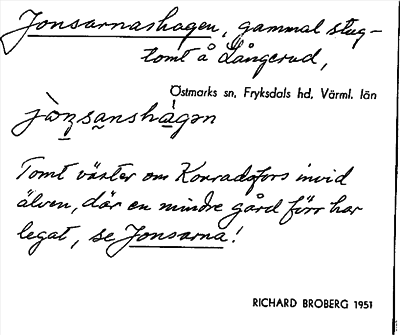 Jonsarnashagen, gammal stug-
tomt å Långerud,
Östmarks sn, Fryksdals hd, Värml. län
jòn̲sa̲nshá̲gən
Tomt väster om Konradsfors invid
älven, där en mindre gård förr har
legat, se Jonsarna!
RICHARD BROBERG 1951